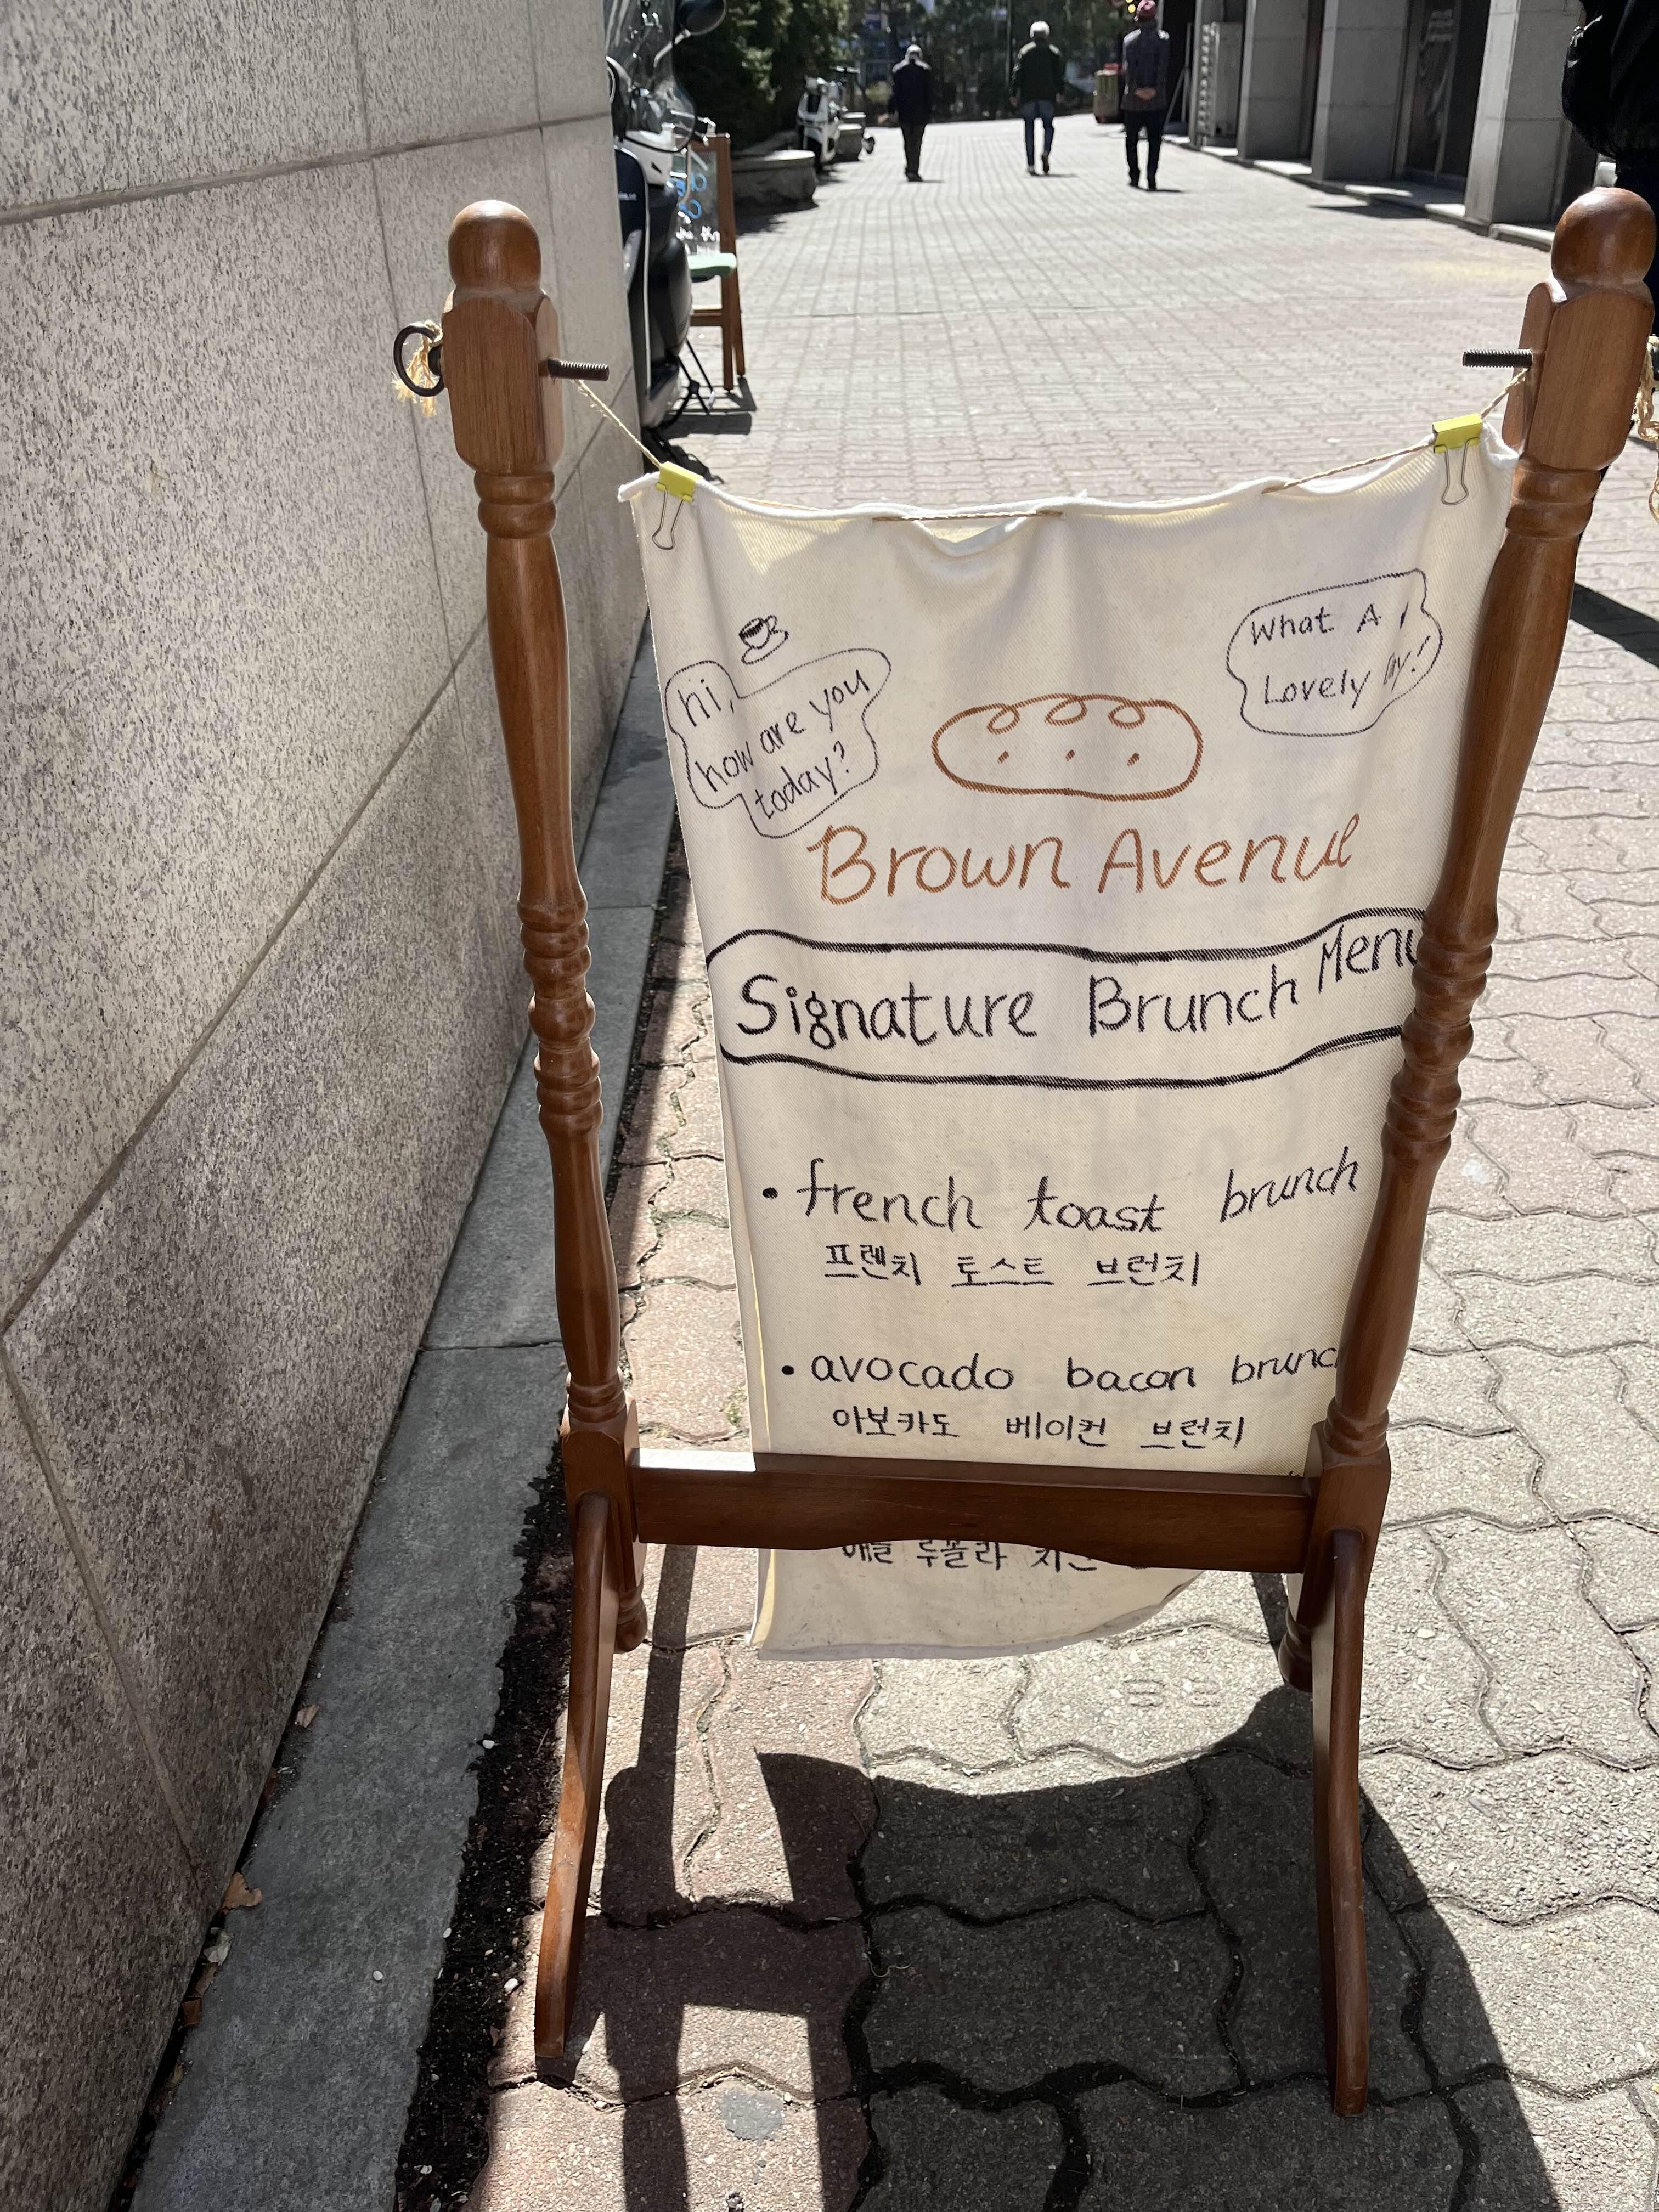 hi,
how are you
today?
What A
Lovely
Brown Avenue
Signature Brunch Menu
• french toast brunch
프렌치 토스트 브런치
• avocado bacon brunch
아보카도 베이컨 브런치
애플 루꼴라 치킨